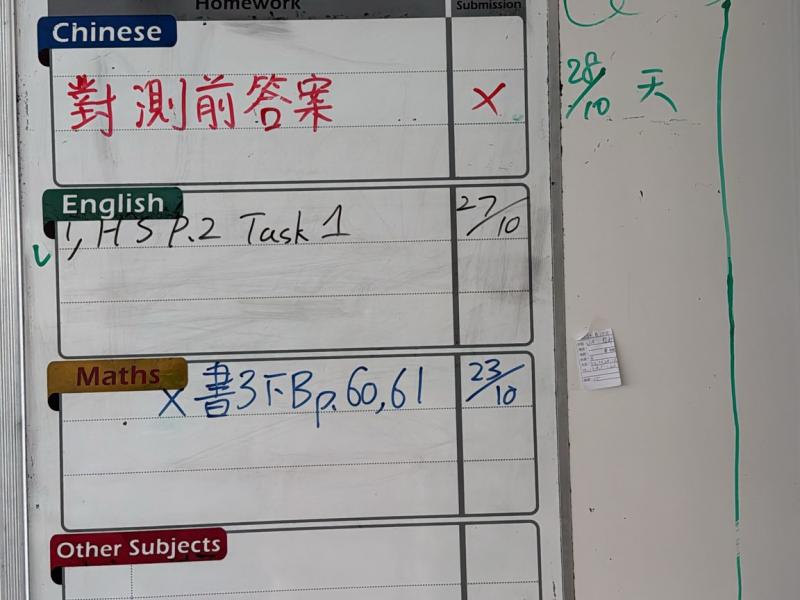 Homework Submission
Chinese
對測前答案 X
28/10 天
English
1, HS P.2 Task 1 27/10
Maths
X 書3下B p.60,61 23/10
Other Subjects